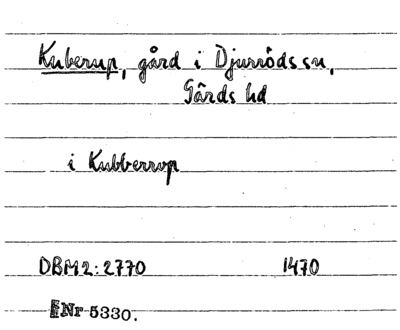 Kuberup, gård i Djurröds sn,
Gärds hd
i Kubberrop
DBM2:2770 1470
Nr 5330.